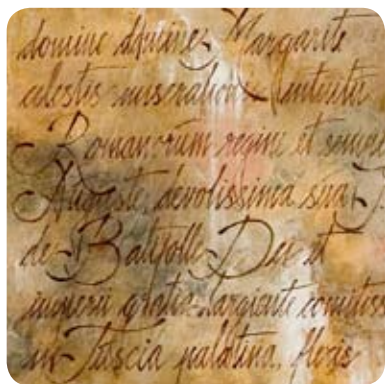 domine domine Margarite
celestis miseratione intuitu
Romanorum regine et semper
Auguste, devotissima sua
de Batifolle Dei et
inperii gratia largiente comitiss
in Tuscia palatina, flexis